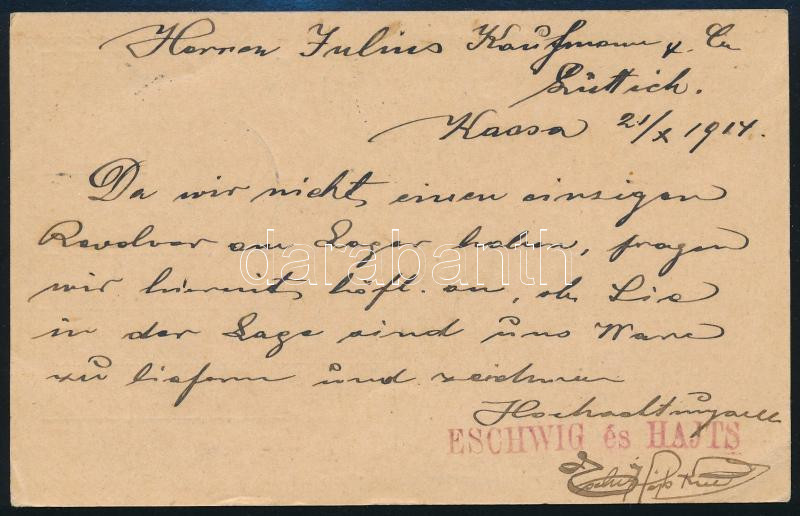 Herren Julius Kaufmann & Co
Lüttich.
Kassa 21/X 1914.
Da wir nicht einen einzigen
Revolver am Lager haben, fragen
darabanth
wir hiermit höfl. an, ob Sie
in der Lage sind uns Ware
zu liefern und zeichnen
Hochachtungsvoll
ESCHWIG és HAJTS